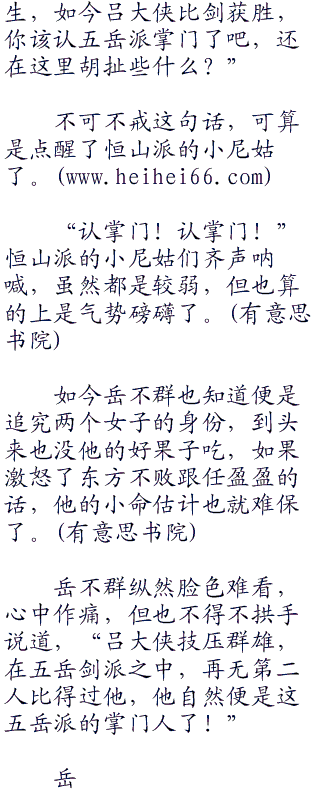 生，如今吕大侠比剑获胜，
你该认五岳派掌门了吧，还
在这里胡扯些什么？”
不可不戒这句话，可算
是点醒了恒山派的小尼姑
了。(www.heihei66.com)
“认掌门！认掌门！”
恒山派的小尼姑们齐声呐
喊，虽然都是较弱，但也算
的上是气势磅礴了。(有意思
书院)
如今岳不群也知道便是
追究两个女子的身份，到头
来也没他的好果子吃，如果
激怒了东方不败跟任盈盈的
话，他的小命估计也就难保
了。(有意思书院)
岳不群纵然脸色难看，
心中作痛，但也不得不拱手
说道，“吕大侠技压群雄，
在五岳剑派之中，再无第二
人比得过他，他自然便是这
五岳派的掌门人了！”
岳